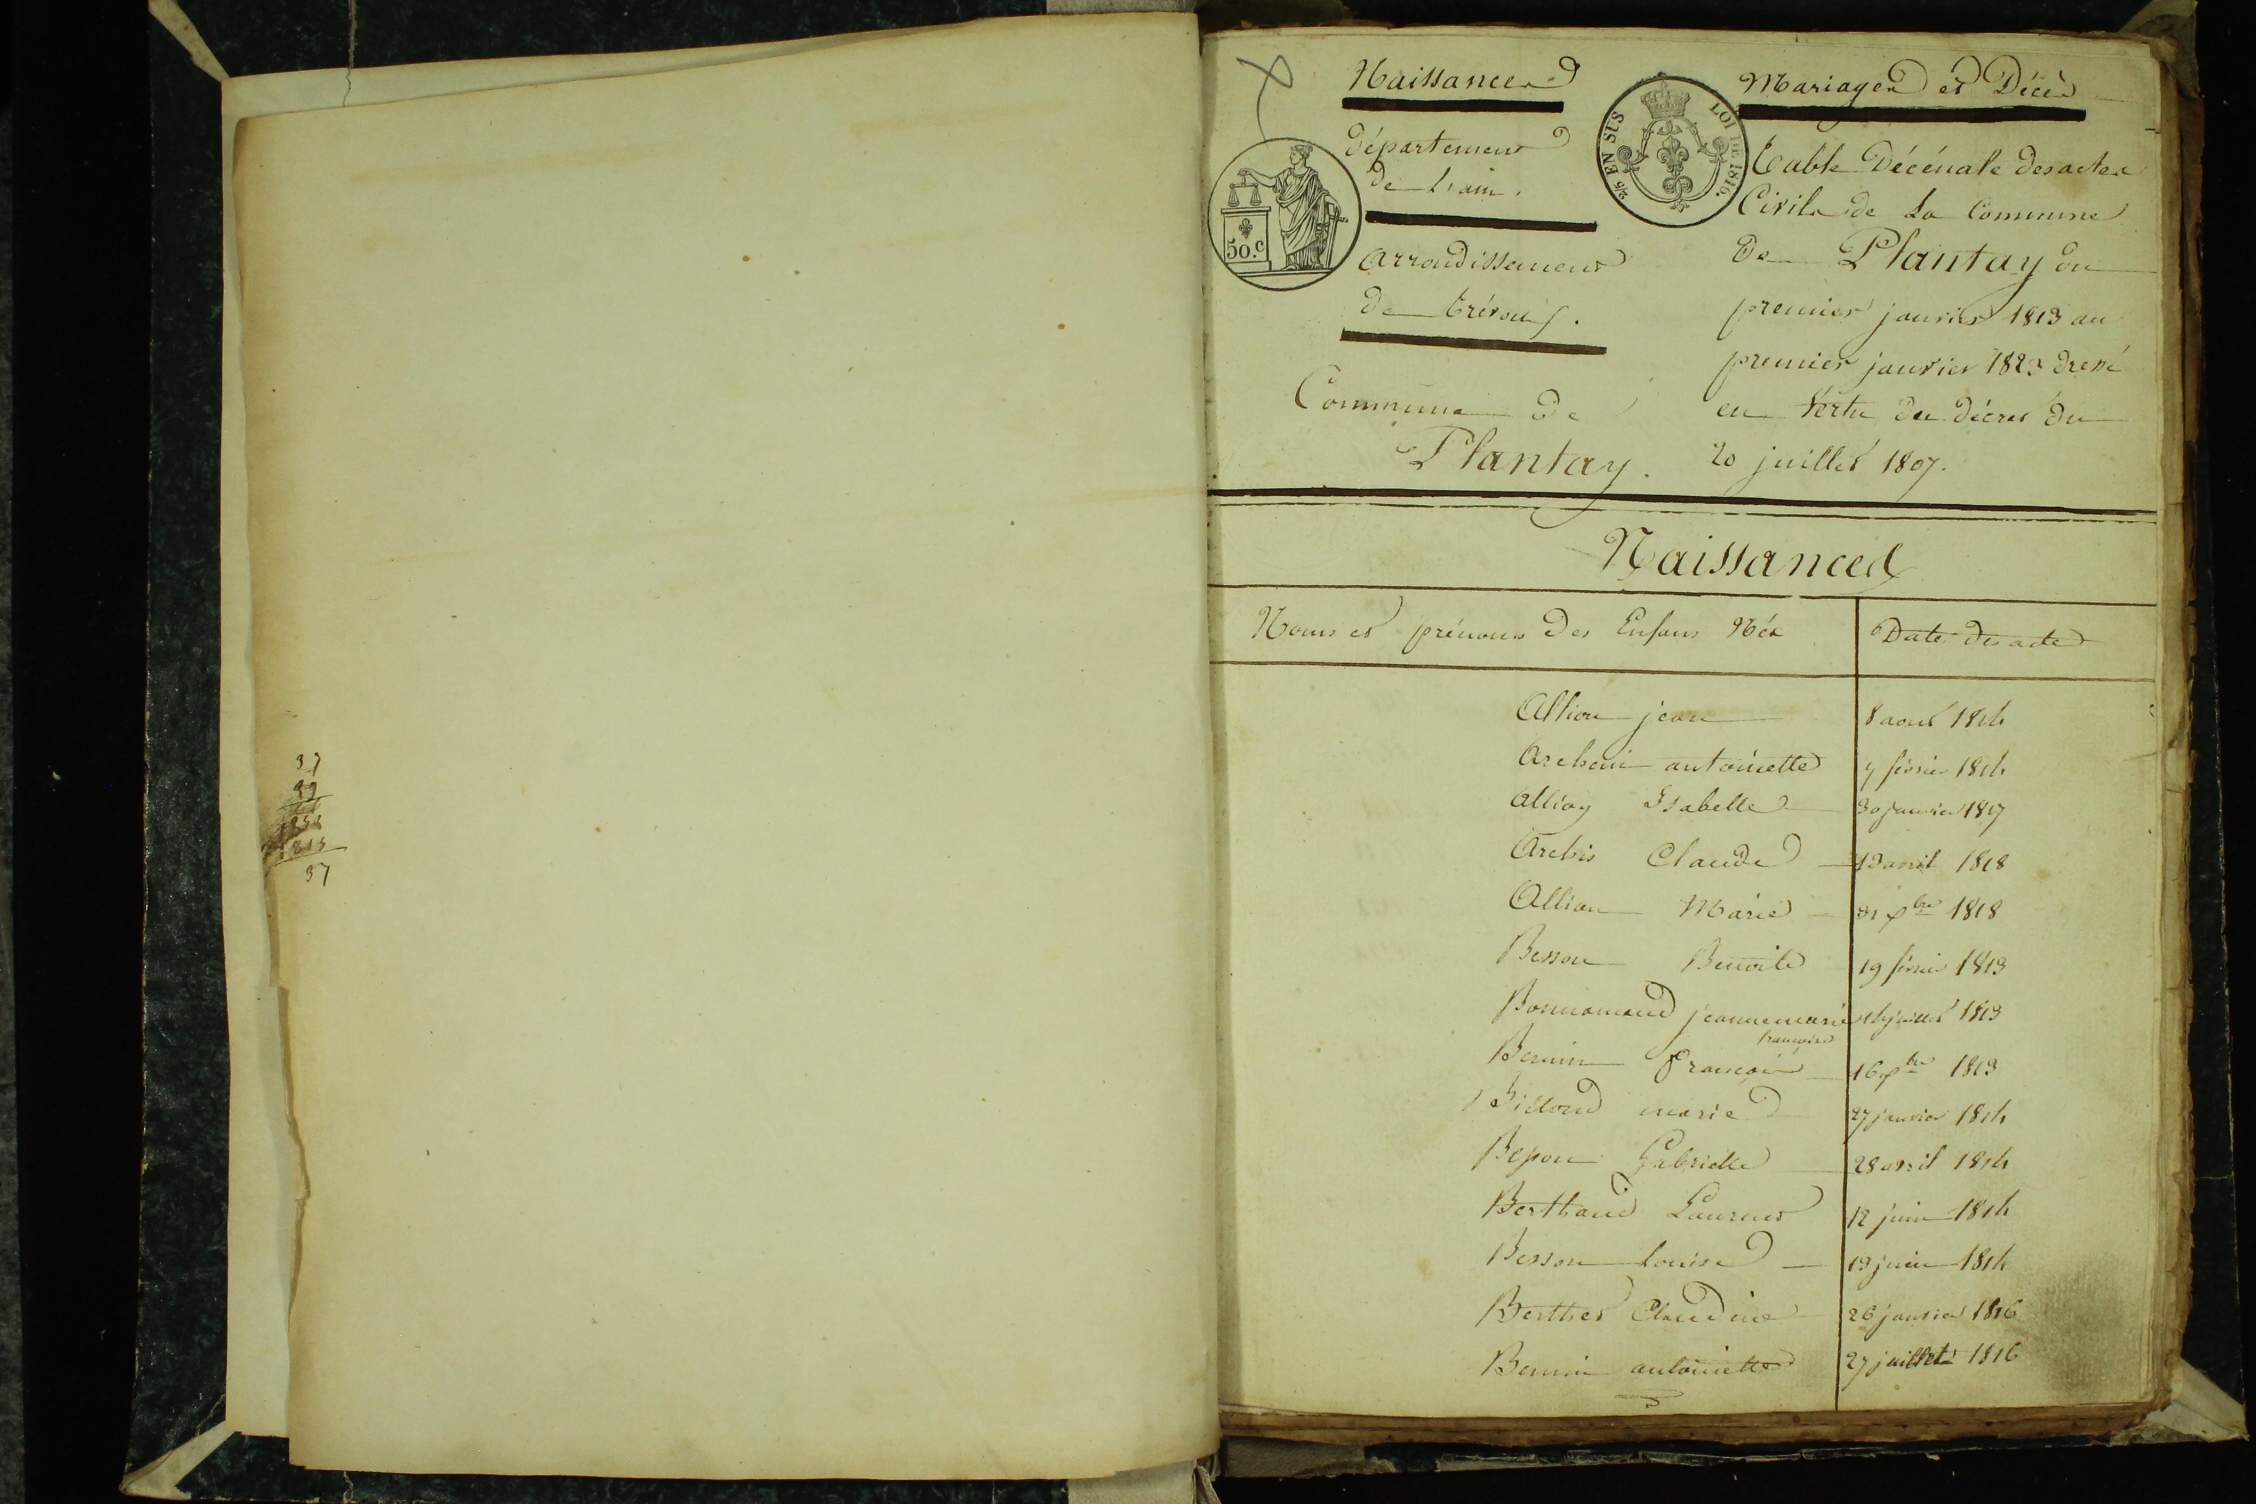 37
37
Naissances
département
de l'ain.
arrondissement
de trévoux.
Commune de
Plantay.
50.c
2/5 EN SUS
LOI DE 1816.
Mariages et Décès
table Décénale des actes
Civils de la Commune
de Plantay du
premier janvier 1813 au
premier janvier 1823 dressé
en vertu du décret du
20 juillet 1807.
Naissances
Noms et prénoms des Enfans Nés
Date des actes
Allion jean 8 aout 1814
antoinette 7 février 1814
Isabelle 30 janvier 1817
Claude 13 avril 1818
Allion Marie 1818
Besson Benoite 19 février 1813
Bonnamand jeanne marie 14 juillet 1813
françoise
Bernin François 16 1813
Billoud marie 27 janvier 1814
Besson Gabrielle 28 avril 1814
Berthaud Laurent 12 juin 1814
Besson Louise 13 juin 1814
Berthet Claudine 26 janvier 1816
Bernin antoinette 27 juillet 1816